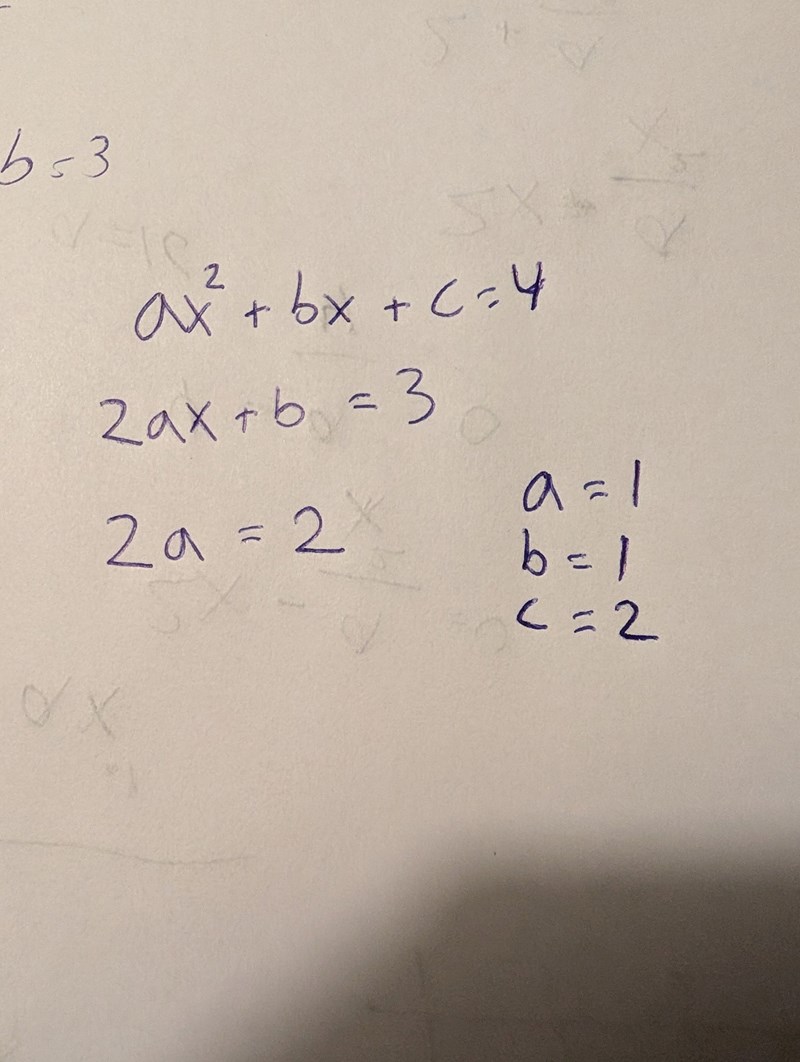 b=3
ax² + bx + c=4
2ax+b = 3
2a = 2
a=1
b=1
c=2